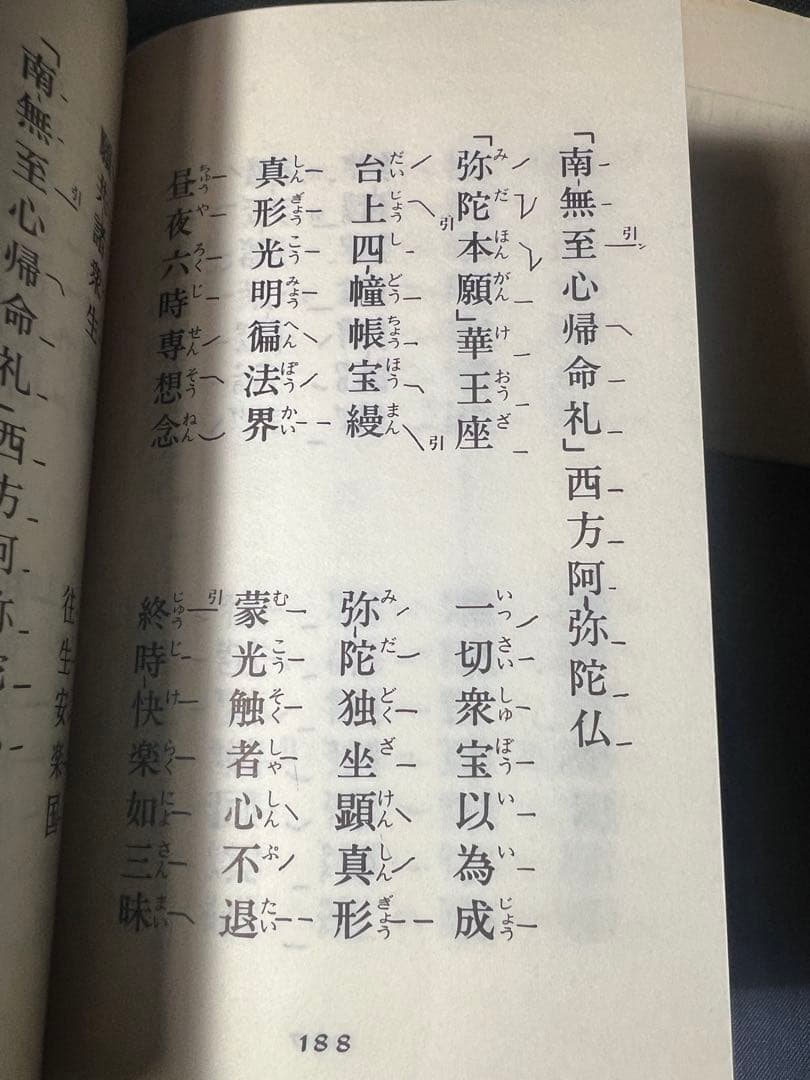 「南無至心帰命礼」西方阿弥陀仏
「弥陀本願」華王座 一切衆宝以為成
台上四幢帳宝縵 弥陀独坐顕真形
真形光明徧法界 蒙光触者心不退
昼夜六時専想念 終時快楽如三昧
衆生 往生安楽国
「南無至心帰命礼」西方阿弥陀
188